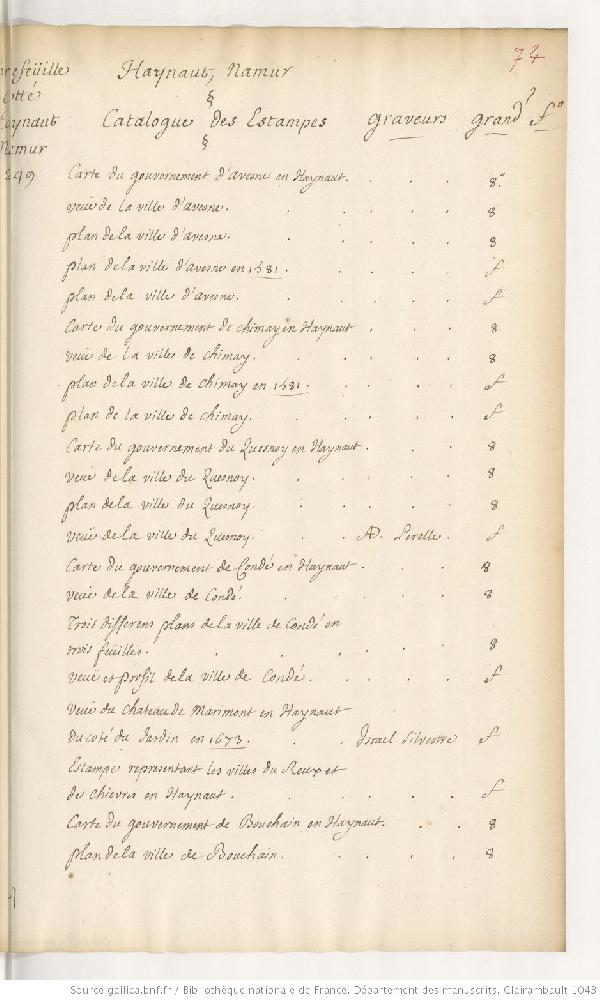 74
Haynaut, Namur
§
Catalogue des Estampes graveurs grand.r f.o
§
feüille
otté
aynaut
Namur
249
Carte du gouvernement d'avesne en Haynaut. . . . 8.o
veuë de la ville d'avesne. . . . . 8
plan de la ville d'avesne. . . . . 8
plan de la ville d'avesne en 1581. . . . f
plan de la ville d'avesne. . . . . f
Carte du gouvernement de chimay en Haynaut . . . 8
veuë de la ville de chimay. . . . . 8
plan de la ville de chimay en 1581. . . . f
plan de la ville de chimay. . . . . f
Carte du gouvernement du Quesnoy en Haynaut . . . 8
veuë de la ville du Quesnoy. . . . . 8
plan de la ville du Quesnoy. . . . . 8
veuë de la ville du Quesnoy. . . AD. Perelle. f
Carte du gouvernement de Condé en Haynaut . . . 8
veuë de la ville de Condé. . . . . 8
Trois differens plans de la ville de Condé en
trois feüilles. . . . . . 8
veuë et profil de la ville de Condé. . . . . f
Veuë du chateau de Marimont en Haynaut
du coté du Jardin en 1673. . . Israel Silvestre f
Estampe representant les villes du Reux et
de chievres en Haynaut. . . . . f
Carte du gouvernement de Bouchain en Haynaut. . . 8
plan de la ville de Bouchain. . . . . 8
Source gallica.bnf.fr / Bibliothèque nationale de France. Département des manuscrits. Clairambault 1043